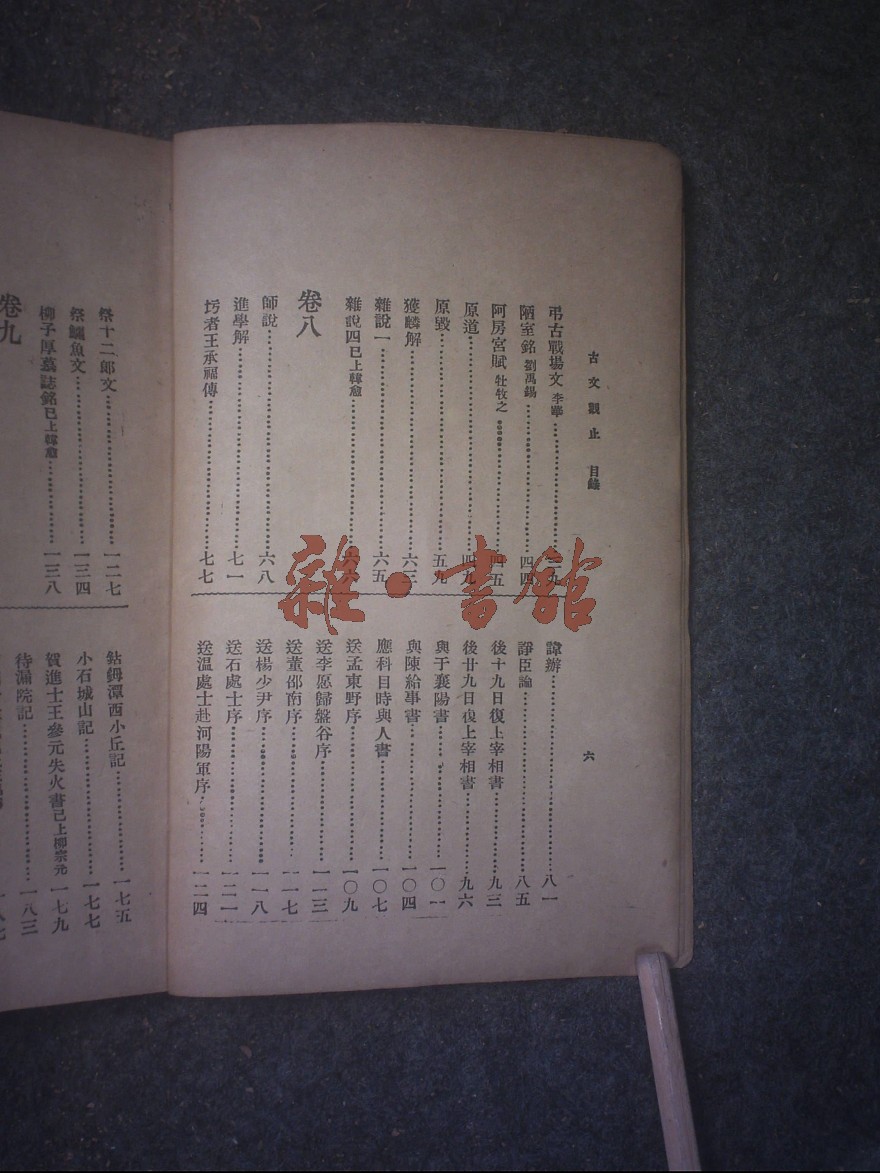 古文觀止 目錄
六
弔古戰場文 李華 三九
陋室銘 劉禹錫 四四
阿房宮賦 杜牧之 四五
原道 四九
原毀 五九
獲麟解 六三
雜說一 六五
雜說四 已上韓愈 六六
卷八
師說 六八
進學解 七一
圬者王承福傳 七七
諱辯 八一
諍臣論 八五
後十九日復上宰相書 九三
後廿九日復上宰相書 九六
與于襄陽書 一〇一
與陳給事書 一〇四
應科目時與人書 一〇七
送孟東野序 一〇九
送李愿歸盤谷序 一一三
送董邵南序 一一七
送楊少尹序 一一八
送石處士序 一二一
送温處士赴河陽軍序 一二四
祭十二郎文 一二七
祭鱷魚文 一三四
柳子厚墓誌銘 已上韓愈 一三八
卷九
鈷鉧潭西小丘記 一七五
小石城山記 一七七
賀進士王參元失火書 已上柳宗元 一七九
待漏院記 一八三
雜·書館